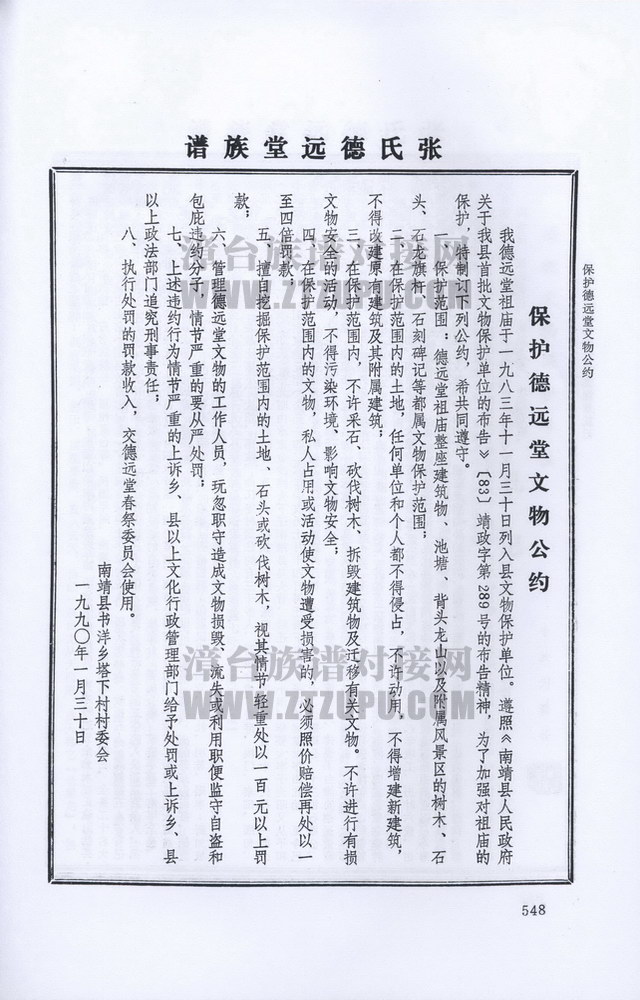 张氏德远堂族谱
保护德远堂文物公约
保护德远堂文物公约
我德远堂祖庙于一九八三年十一月三十日列入县文物保护单位。遵照《南靖县人民政府
关于我县首批文物保护单位的布告》〔83〕靖政字第289号的布告精神，为了加强对祖庙的
保护，特制订下列公约，希共同遵守。
一、保护范围：德远堂祖庙整座建筑物、池塘、背头龙山以及附属风景区的树木、石
头、石龙旗杆、石刻碑记等都属文物保护范围；
二、在保护范围内的土地，任何单位和个人都不得侵占，不许动用，不得增建新建筑，
不得改建原有建筑及其附属建筑；
三、在保护范围内，不许采石、砍伐树木、拆毁建筑物及迁移有关文物。不许进行有损
文物安全的活动，不得污染环境、影响文物安全；
四、在保护范围内的文物，私人占用或活动使文物遭受损害的，必须照价赔偿再处以一
至四倍罚款；
五、擅自挖掘保护范围内的土地、石头或砍伐树木，视其情节轻重处以一百元以上罚
款；
六、管理德远堂文物的工作人员，玩忽职守造成文物损毁、流失或利用职便监守自盗和
包庇违约分子，情节严重的要从严处罚；
七、上述违约行为情节严重的上诉乡、县以上文化行政管理部门给予处罚或上诉乡、县
以上政法部门追究刑事责任；
八、执行处罚的罚款收入，交德远堂春祭委员会使用。
南靖县书洋乡塔下村村委会
一九九〇年一月三十日
548
漳台族谱对接网
WWW.ZTZUPU.COM
漳台族谱对接网
WWW.ZTZUPU.COM